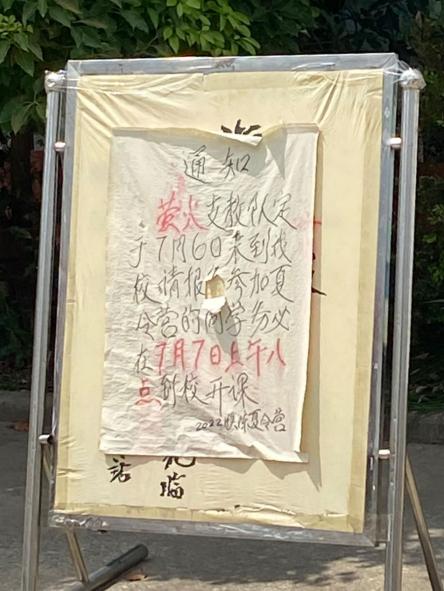 通知
萤火支教队定
于7月6日来到我
校,请报 参加夏
令营的同学务必
在7月7日上午八
点到校开课
2022快乐夏令营
临